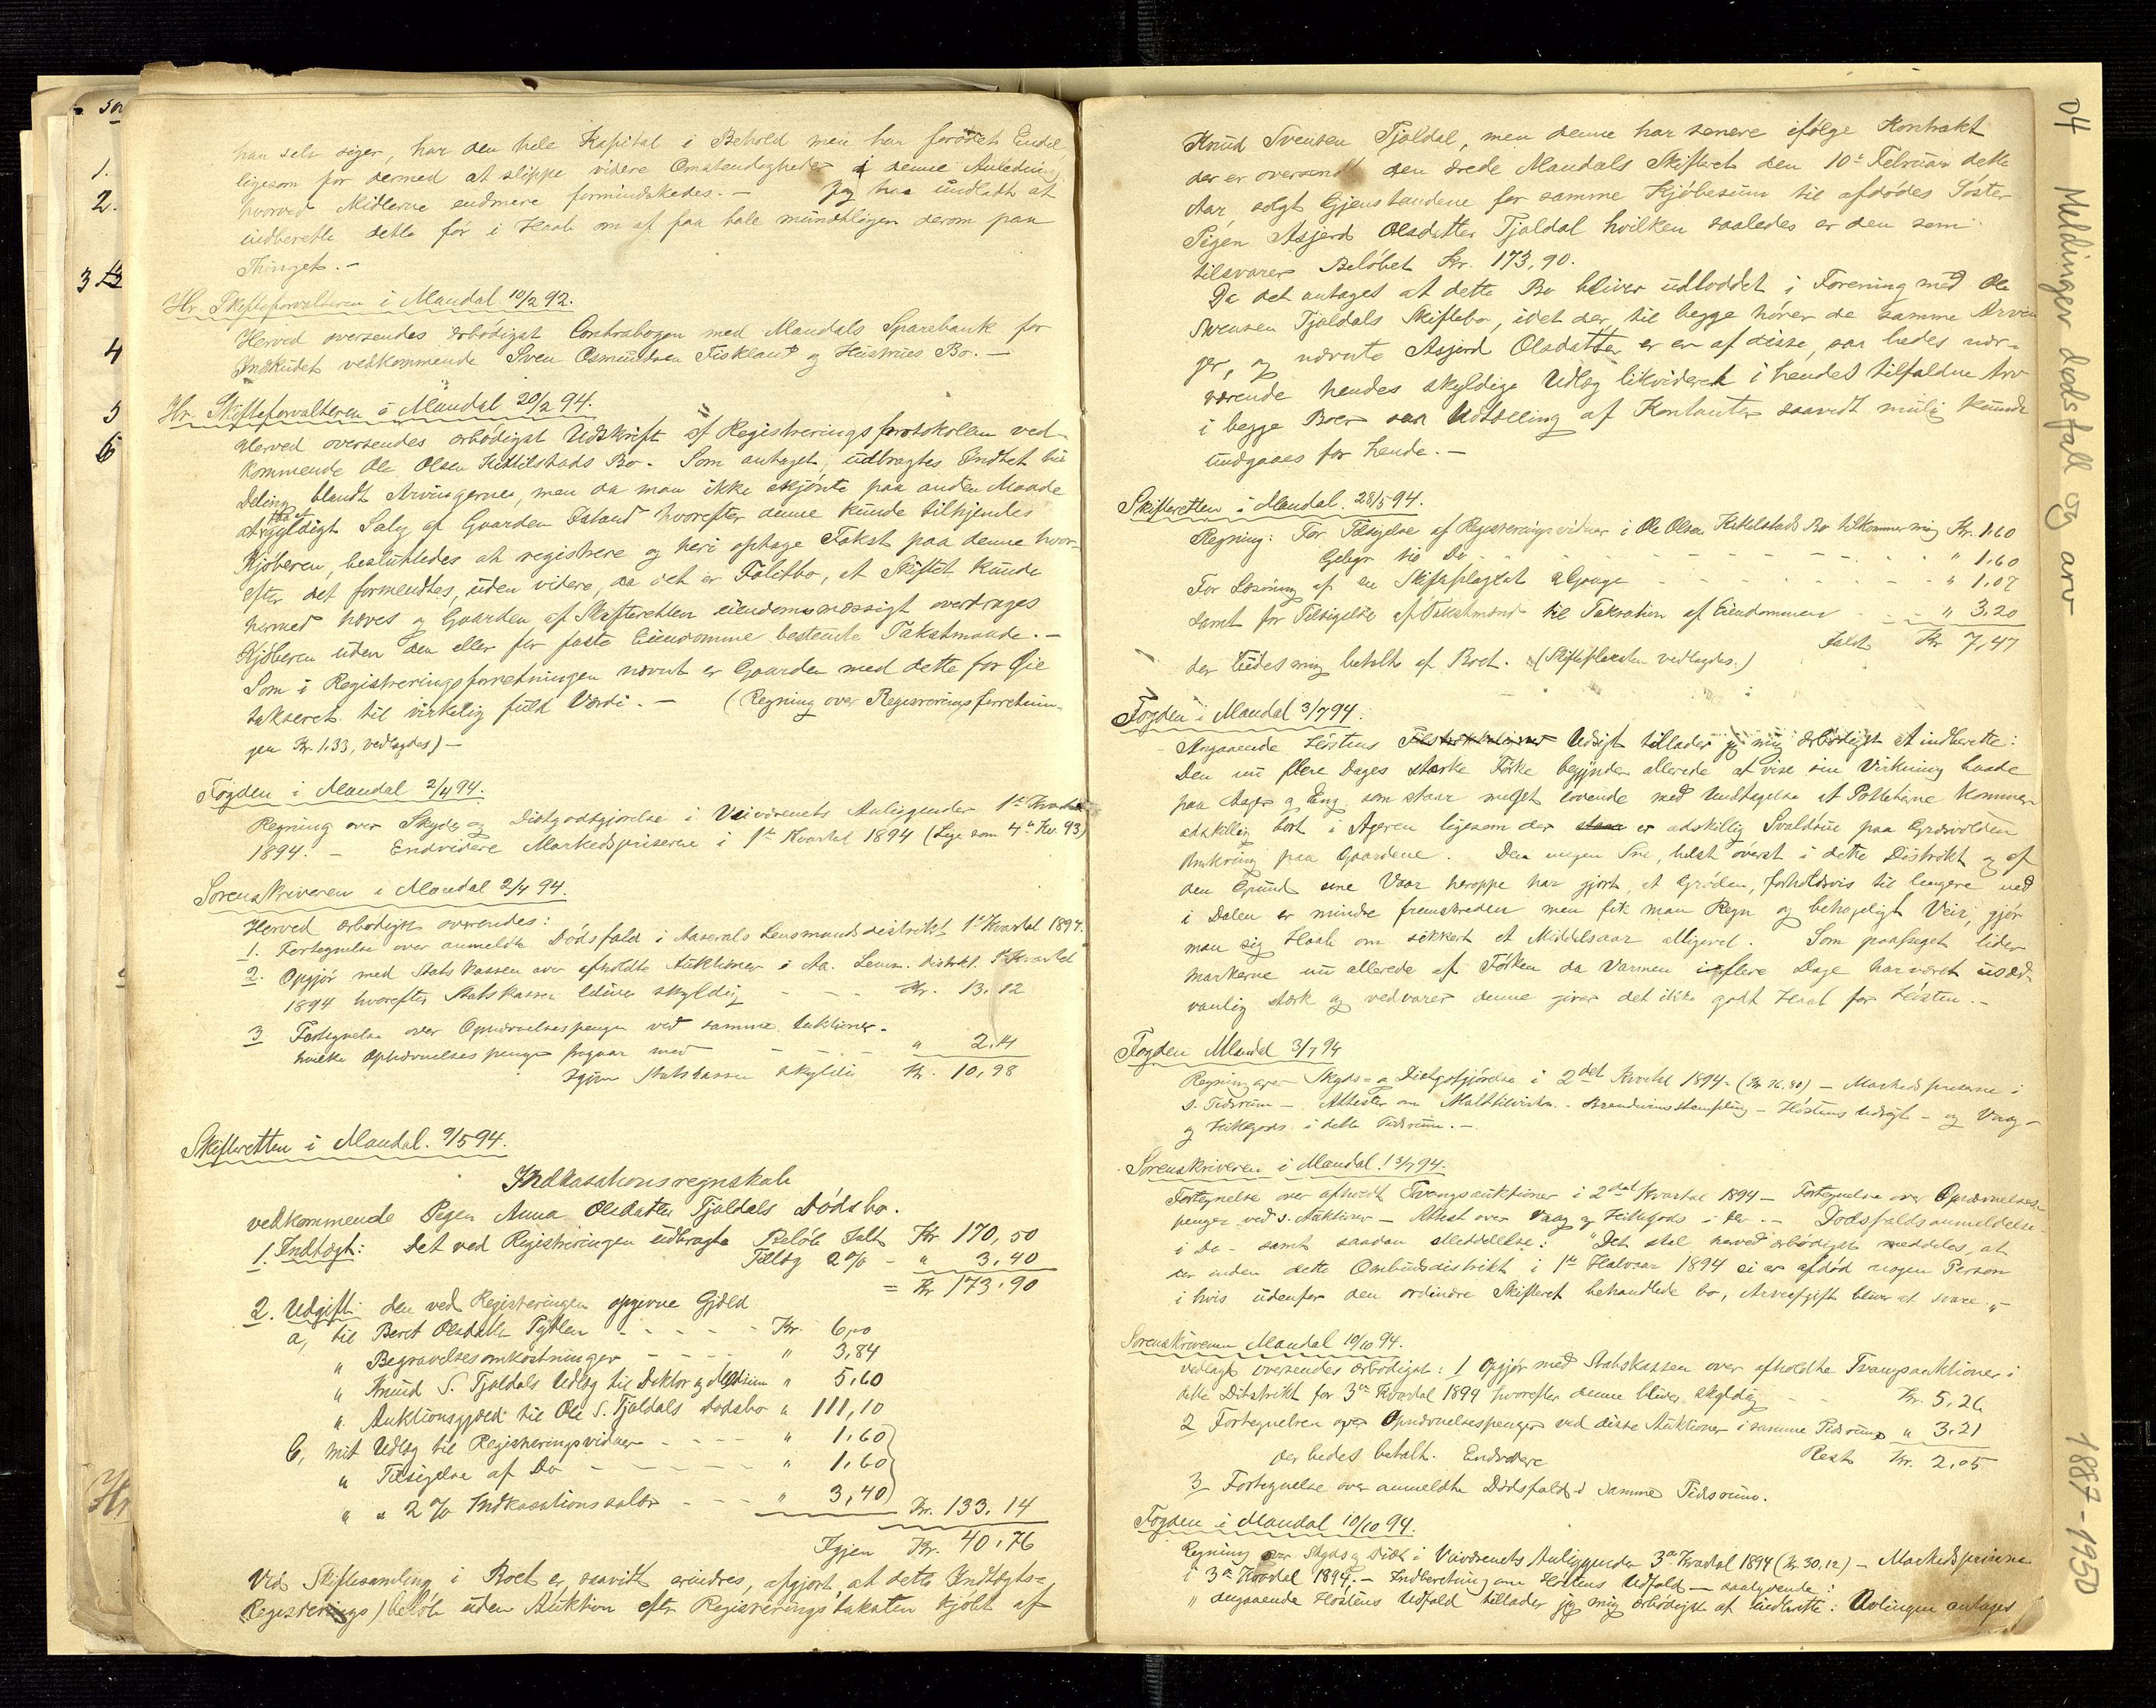 han selv siger, har den hele Kapital i Behold men har forödet Endel
ligesom for dermed at slippe videre Omstændigheder i denne Anledning
hvorved Midlerne endmere formindskedes. — Jeg har undladt at
indberette dette för i Haab om at faa tale mundtligen derom paa
Thinget. —
Hr. Skifteforvalteren i Mandal 10/2 92.
Herved oversendes ærbödigst Contrabogen med Mandals Sparebank for
Indskudet vedkommende Sven Osmundsen Fiskland og Hustrues Bo. —
Hr. Skifteforvalteren i Mandal 20/2 94.
Herved oversendes ærbödigst Udskrift af Registreringsprotokollen ved-
kommende Ole Olsen Kittilstads Bo. Som antaget, udbragtes Indtet til
Deling blandt Arvingerne, men da man ikke skjönte paa anden Maade
Salg af Gaarden hvorefter denne kunde tilkjendes
Kjöberen, besluttedes at registrere og heri optage Takst paa denne hvor-
efter det formentes, uden videre, da det er Falitbo, at Skiftet kunde
hermed hæves og Gaarden af Skifteretten eiendomsmæssigt overdrages
Kjöberen uden den eller for faste Eiendomme bestemte Takstmaade. —
Som i Registreringsforretningen nævnt er Gaarden med dette for Öie
takseret til virkelig fuld Værdi. — (Regning over Registreringsforretnin-
gen Kr. 1.33, vedlagdes) —
Fogden i Mandal 2/4 94.
Regning over Skyds og Diætgodtgjörelse i Veivæsenets Anliggender 1ste Kvartal
1894. — Endvidere Markedspriserne i 1ste Kvartal 1894 (Lige som 4de Kv. 93)
Sorenskriveren i Mandal 2/4 94.
Herved ærbödigst oversendes:
1. Fortegnelse over anmeldte Dödsfald i Aaserals Lensmandsdistrikt 1ste Kvartal 1894.
2. Opgjör med Statskassen over afholdte Auktioner i Aa. Lensm. distrikt 1ste Kvartal
1894 hvorefter Statskassen bliver skyldig - - - Kr. 13.12
3. Fortegnelse over Opnævnelsespenge ved samme Auktioner -
hvilke Opnævnelsespenge fragaar med - - - " 2.14
Igjen Statskassen skyldig Kr. 10,98
Skifteretten i Mandal. 9/5 94.
Indkasationsregnskab
vedkommende Pigen Anna Olsdatter Tjaldals Dödsbo.
1. Indtægt: Det ved Registreringen udbragte Belöb Ialt Kr 170,50
Tillæg 2% - " 3.40
= Kr 173.90
2. Udgift: den ved Registreringen opgivne Gjæld
a, til Beret Olsdatter - - - - Kr. 6,00
" Begravelsesomkostninger - - - - " 3,84
" Knud S. Tjaldals Udlæg til Doktor og Medicin " 5,60
" Auktionsgjæld til Ole S. Tjaldals Dödsbo " 111,10
b, mit Udlæg til Registreringsvidner - - - - " 1.60
" Tilsigelse af Do - - - - " 1.60
" " 2% Indkasationssalær - - - " 3,40 Kr. 133.14
Igjen Kr. 40.76
Ved Skiftesamling i Boet er, saavidt erindres, afgjort, at dette Indtægts=
(Registrerings) belöb uden Auktion efter Registreringstaksten kjöbt af
Knud Svensen Tjaldal, men denne har senere ifölge Kontrakt
der er oversendt den ærede Mandals Skifteret den 10de Februar dette
Aar, solgt Gjenstandene for samme Kjöbesum til afdödes Söster
Pigen Asjerd Olsdatter Tjaldal hvilken saaledes er den som
tilsvarer Belöbet Kr. 173,90.
Da det antages at dette Bo bliver udloddet i Forening med Ole
Svensen Tjaldals Skiftebo, idet der til begge hörer de samme Arvin
ger, og nævnte Asjerd Olsdatter er en af disse, saa bedes nær-
værende hendes skyldige Udlæg likvideret i hendes tilfaldne Arv
i begge Boer saa Udtælling af Kontanter saavidt mulig kunde
undgaaes for hende. —
Skifteretten i Mandal. 28/5 94.
Regning: For Tilsigelse af Registreringsvidner i Ole Olsen Kittelstads Bo tilkommer mig Kr. 1.60
Gebyr til Do - - - - " 1.60
For Læsning af en Skifteplagkat 2 Gange - - - - " 1.07
samt for Tilsigelse af Takstmænd til Taksation af Eiendommen - - " 3.20
Ialt Kr 7,47
der bedes mig betalt af Boet. (Skifteplakaten vedlagdes.)
Fogden i Mandal 3/7 94.
Angaaende Höstens Udsigt tillader jeg mig ærbödigst at indberette:
Den nu flere Dages stærke Törke begynder allerede at vise sin Virkning baade
paa Ager og Eng som staar meget lovende med Undtagelse at Potteterne kommer
adskillig bort i Ageren ligesom der er adskillig Svaldbrue paa Græsvolden
omkring paa Gaardene. Den megen Sne, helst överst i dette Distrikt og af
den Grund sene Vaar heroppe har gjort, at Gröden, forholdsvis til længere ned
i Dalen er mindre fremskreden men fik man Regn og behageligt Veir, gjör
man sig Haab om sikkert et Middelsaar alligevel. Som paafaget lider
Markerne nu allerede af Törken da Varmen i flere Dage har været usæd-
vanlig stærk og vedvarer denne giver det ikke godt Haab for Hösten. —
Fogden Mandal 3/7 94
Regning over Skyds- og Diætgodtgjörelse i 2det Kvartal 1894 - (Kr 76.80) — Markedspriserne i
s. Tidsrum — Attester om Malttilvirkn. - Brændevinsstempling - Höstens Udsigt - og Vrag-
og Hittegods i dette Tidsrum. —
Sorenskriveren i Mandal 13/7 94.
Fortegnelse over afholdt Tvangsauktioner i 2det Kvartal 1894 — Fortegnelse over Opnævnelses-
penger ved s. Auktioner — Attest over Vrag og Hittegods i Do. — Dödsfaldsanmeldelse
i Do - samt saadan Meddelelse: "Det skal herved ærbödigst meddeles, at
der inden dette Ombudsdistrikt i 1ste Halvaar 1894 ei er afdöd nogen Person
i hvis udenfor den ordinære Skifteret behandlede bo, Arveafgift bliver at svare."
Sorenskriveren Mandal 10/10 94.
vedlagt oversendes ærbödigst: 1 Opgjör med Statskassen over afholdte Tvangsauktioner i
dette Distrikt for 3die Kvartal 1894 hvorefter denne bliver skyldig - Kr. 5,26
2 Fortegnelsen over Opnævnelsespenger ved disse Auktioner i samme Tidsrum " 3.21
der bedes betalt. Endvidere Rest Kr. 2,05
3 Fortegnelse over anmeldte Dödsfald i samme Tidsrum.
Fogden i Mandal 10/10 94.
Regning over Skyds og Diæt i Veivæsenets Anliggender 3die Kvartal 1894 (Kr. 30,12) — Markedspriserne
i 3die Kvartal 1894. — Indberetning om Höstens Udfald — saalydende:
" angaaende Höstens Udfald tillader jeg mig ærbödigst at indberette: Avlingen antages
04 Meldinger dødsfall og arv 1887-1950
1.
2.
3
4
5
6